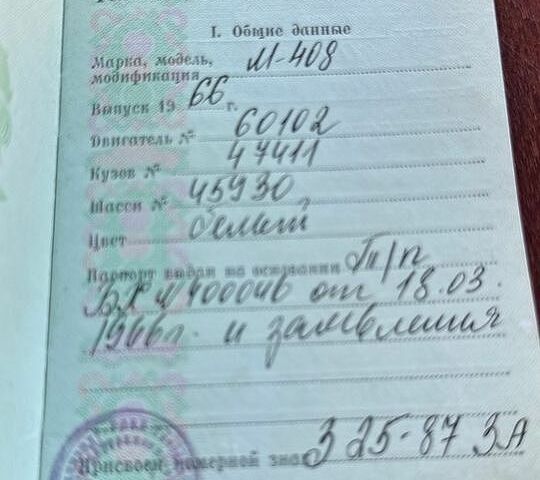 I. Общие данные
Марка, модель, М-408
модификация
Выпуск 19 66 г.
Двигатель № 60102
Кузов № 47411
Шасси № 45930
Цвет белый
Паспорт выдан на основании Тп/п
от 18.03.
1966г. и заявления
Присвоен номерной знак З 25-87 ЗА